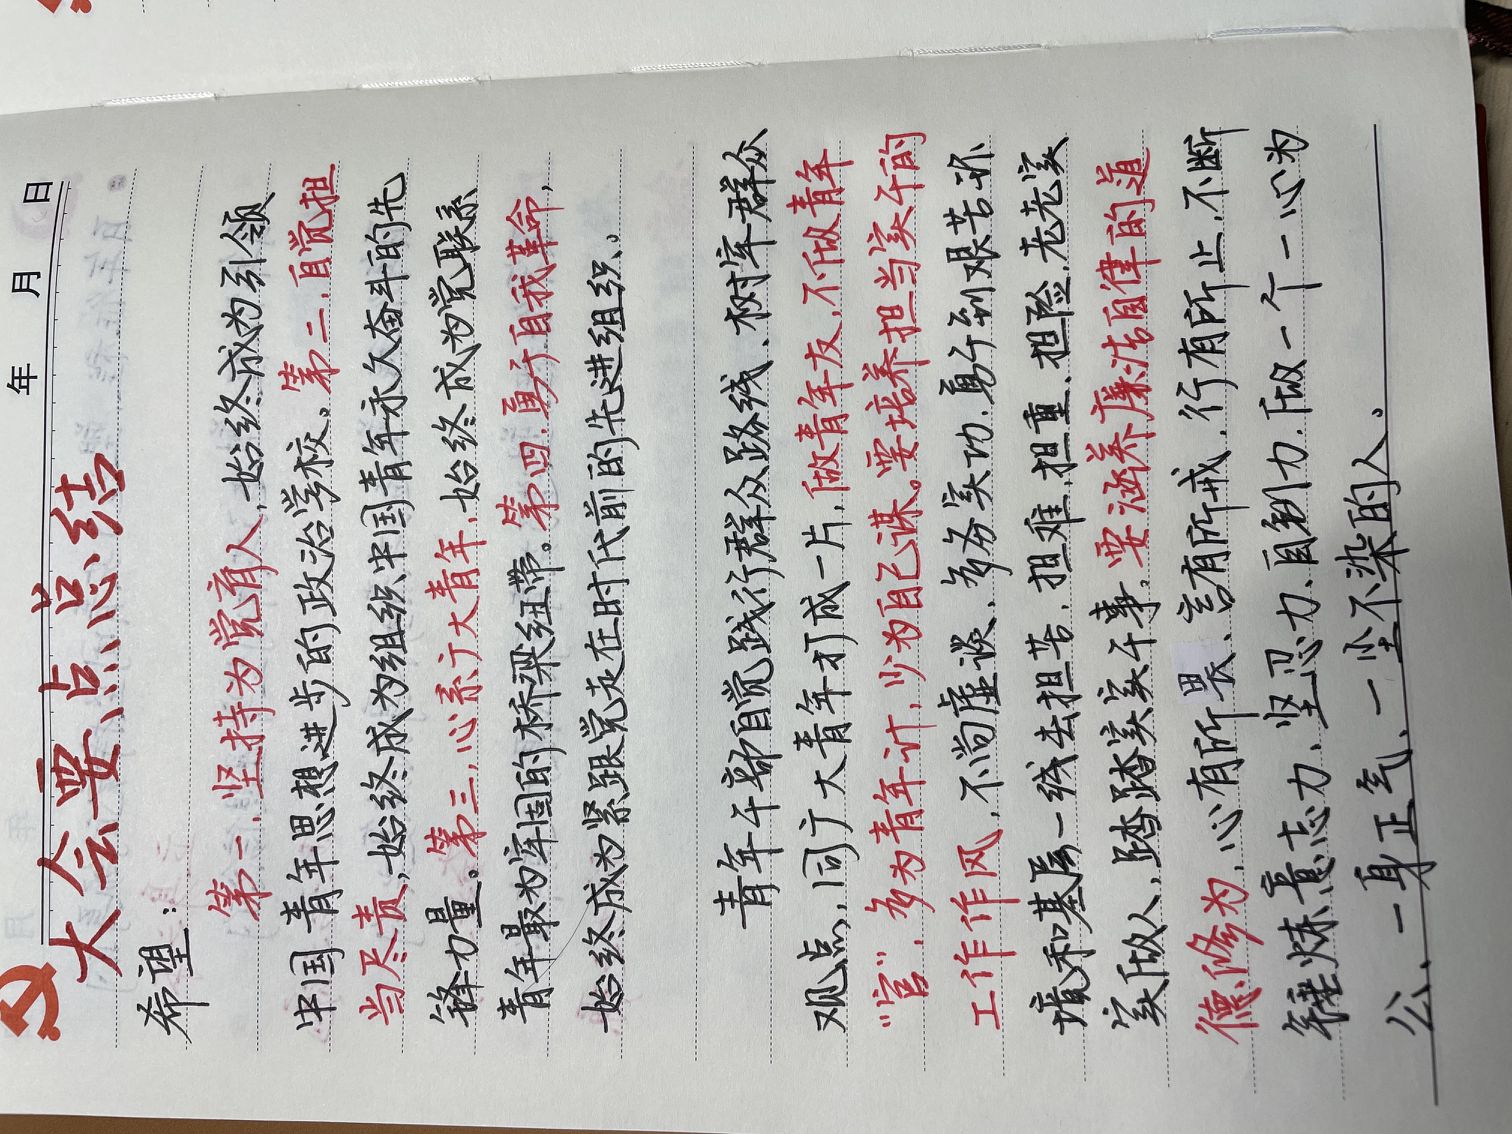 年 月 日
大会要点总结
希望：
第一，坚持为党育人，始终成为引领
中国青年思想进步的政治学校。第二，自觉担
当尽责，始终成为组织中国青年永久奋斗的先
锋力量。第三，心系广大青年，始终成为党联系
青年最为牢固的桥梁纽带。第四，勇于自我革命，
始终成为紧跟党走在时代前的先进组织。
青年干部自觉践行群众路线、树牢群众
观点，同广大青年打成一片，做青年友，不做青年
“官”，多为青年计，少为自己谋。要培养担当实干的
工作作风，不尚虚谈、多务实功，勇于到艰苦环
境和基层一线去担苦、担难、担重、担险，老老实
实做人，踏踏实实干事。要涵养廉洁自律的道
德修为，心有所畏、言有所戒、行有所止，不断
锤炼意志力、坚忍力、自制力，做一个一心为
公、一身正气、一尘不染的人。